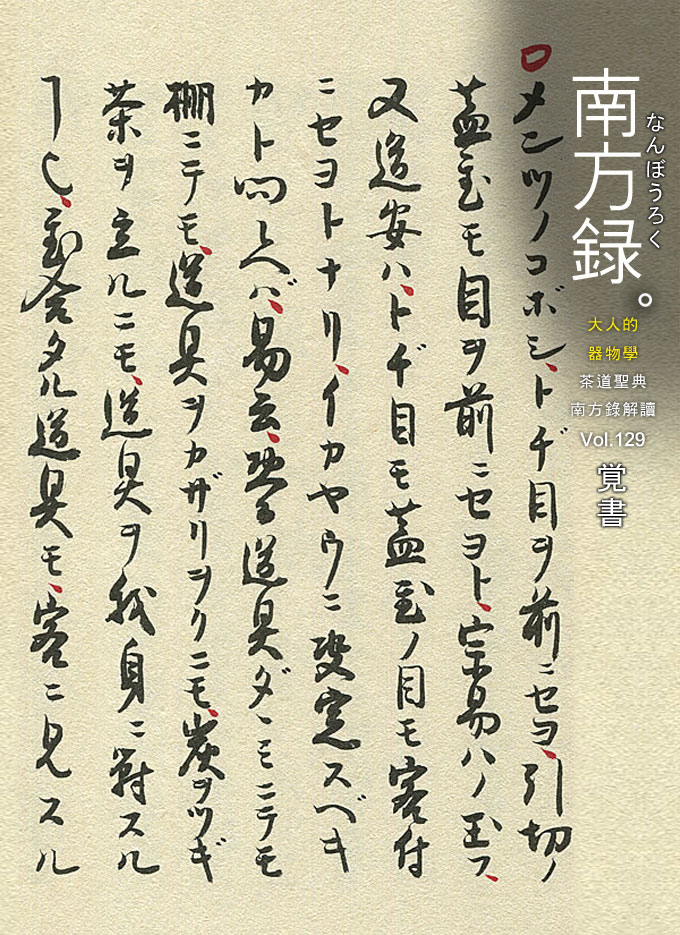 なんぼうろく
南方録。
大人的
器物學
茶道聖典
南方錄解讀
Vol.129
覚書
〇メンツノコボシ、トヂ目ヲ前ニセヨ、引切ノ
蓋置モ目ヲ前ニセヨト、宗易ハノ玉フ、
又道安ハ、トヂ目モ蓋置ノ目モ客付
ニセヨトナリ、イカヤウニ定スベキ
カト問ヘバ、易云、惣道具ダヽミニテモ
棚ニテモ、道具ヲカザリヲクニモ、炭ヲツギ
茶ヲ立ルニモ、道具ヲ我身ニ對スル
ヿ也、置合タル道具モ、客ニ見スル